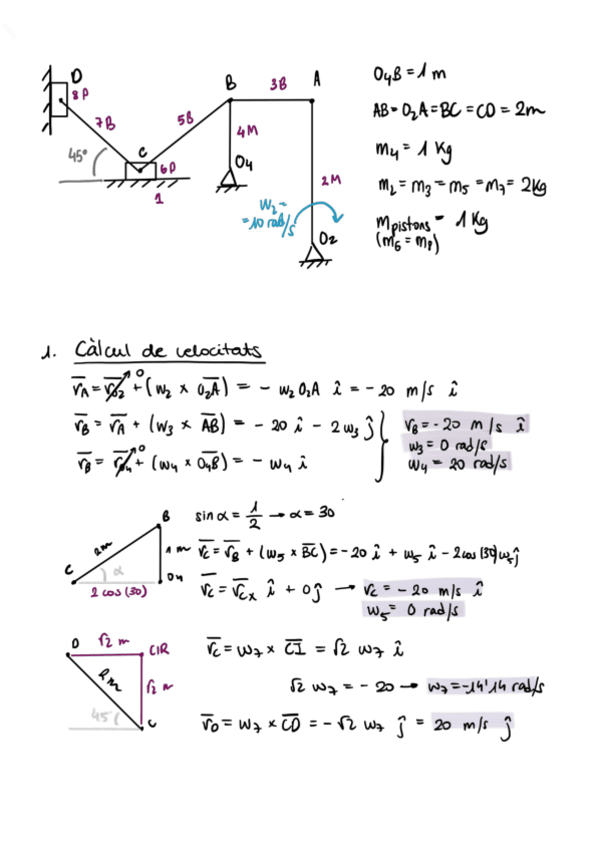 D
8P
7B
45°
C
6P
1
5B
B
3B
A
4M
O4
2M
W2 =
= 10 rad/s
O2
O4B = 1 m
AB = O2A = BC = CD = 2m
m4 = 1 Kg
m2 = m3 = m5 = m7 = 2kg
mpistons = 1 Kg
(m6 = m8)
1. Càlcul de velocitats
vA = vO2 0 + (w2 x O2A) = - w2 O2A î = - 20 m/s î
vB = vA + (w3 x AB) = - 20 î - 2 w3 ĵ
vB = vO4 0 + (w4 x O4B) = - w4 î
vB = - 20 m/s î
w3 = 0 rad/s
w4 = 20 rad/s
B
2m
1 m
C
α
O4
2 cos (30)
sin α = 1/2 → α = 30
vC = vB + (w5 x BC) = - 20 î + w5 î - 2cos(30) w5 ĵ
vC = vCx î + 0 ĵ → vC = - 20 m/s î
w5 = 0 rad/s
D
√2 m
CIR
2 m
√2 m
45°
C
vC = w7 x CI = √2 w7 î
√2 w7 = - 20 → w7 = -14'14 rad/s
vD = w7 x CD = - √2 w7 ĵ = 20 m/s ĵ